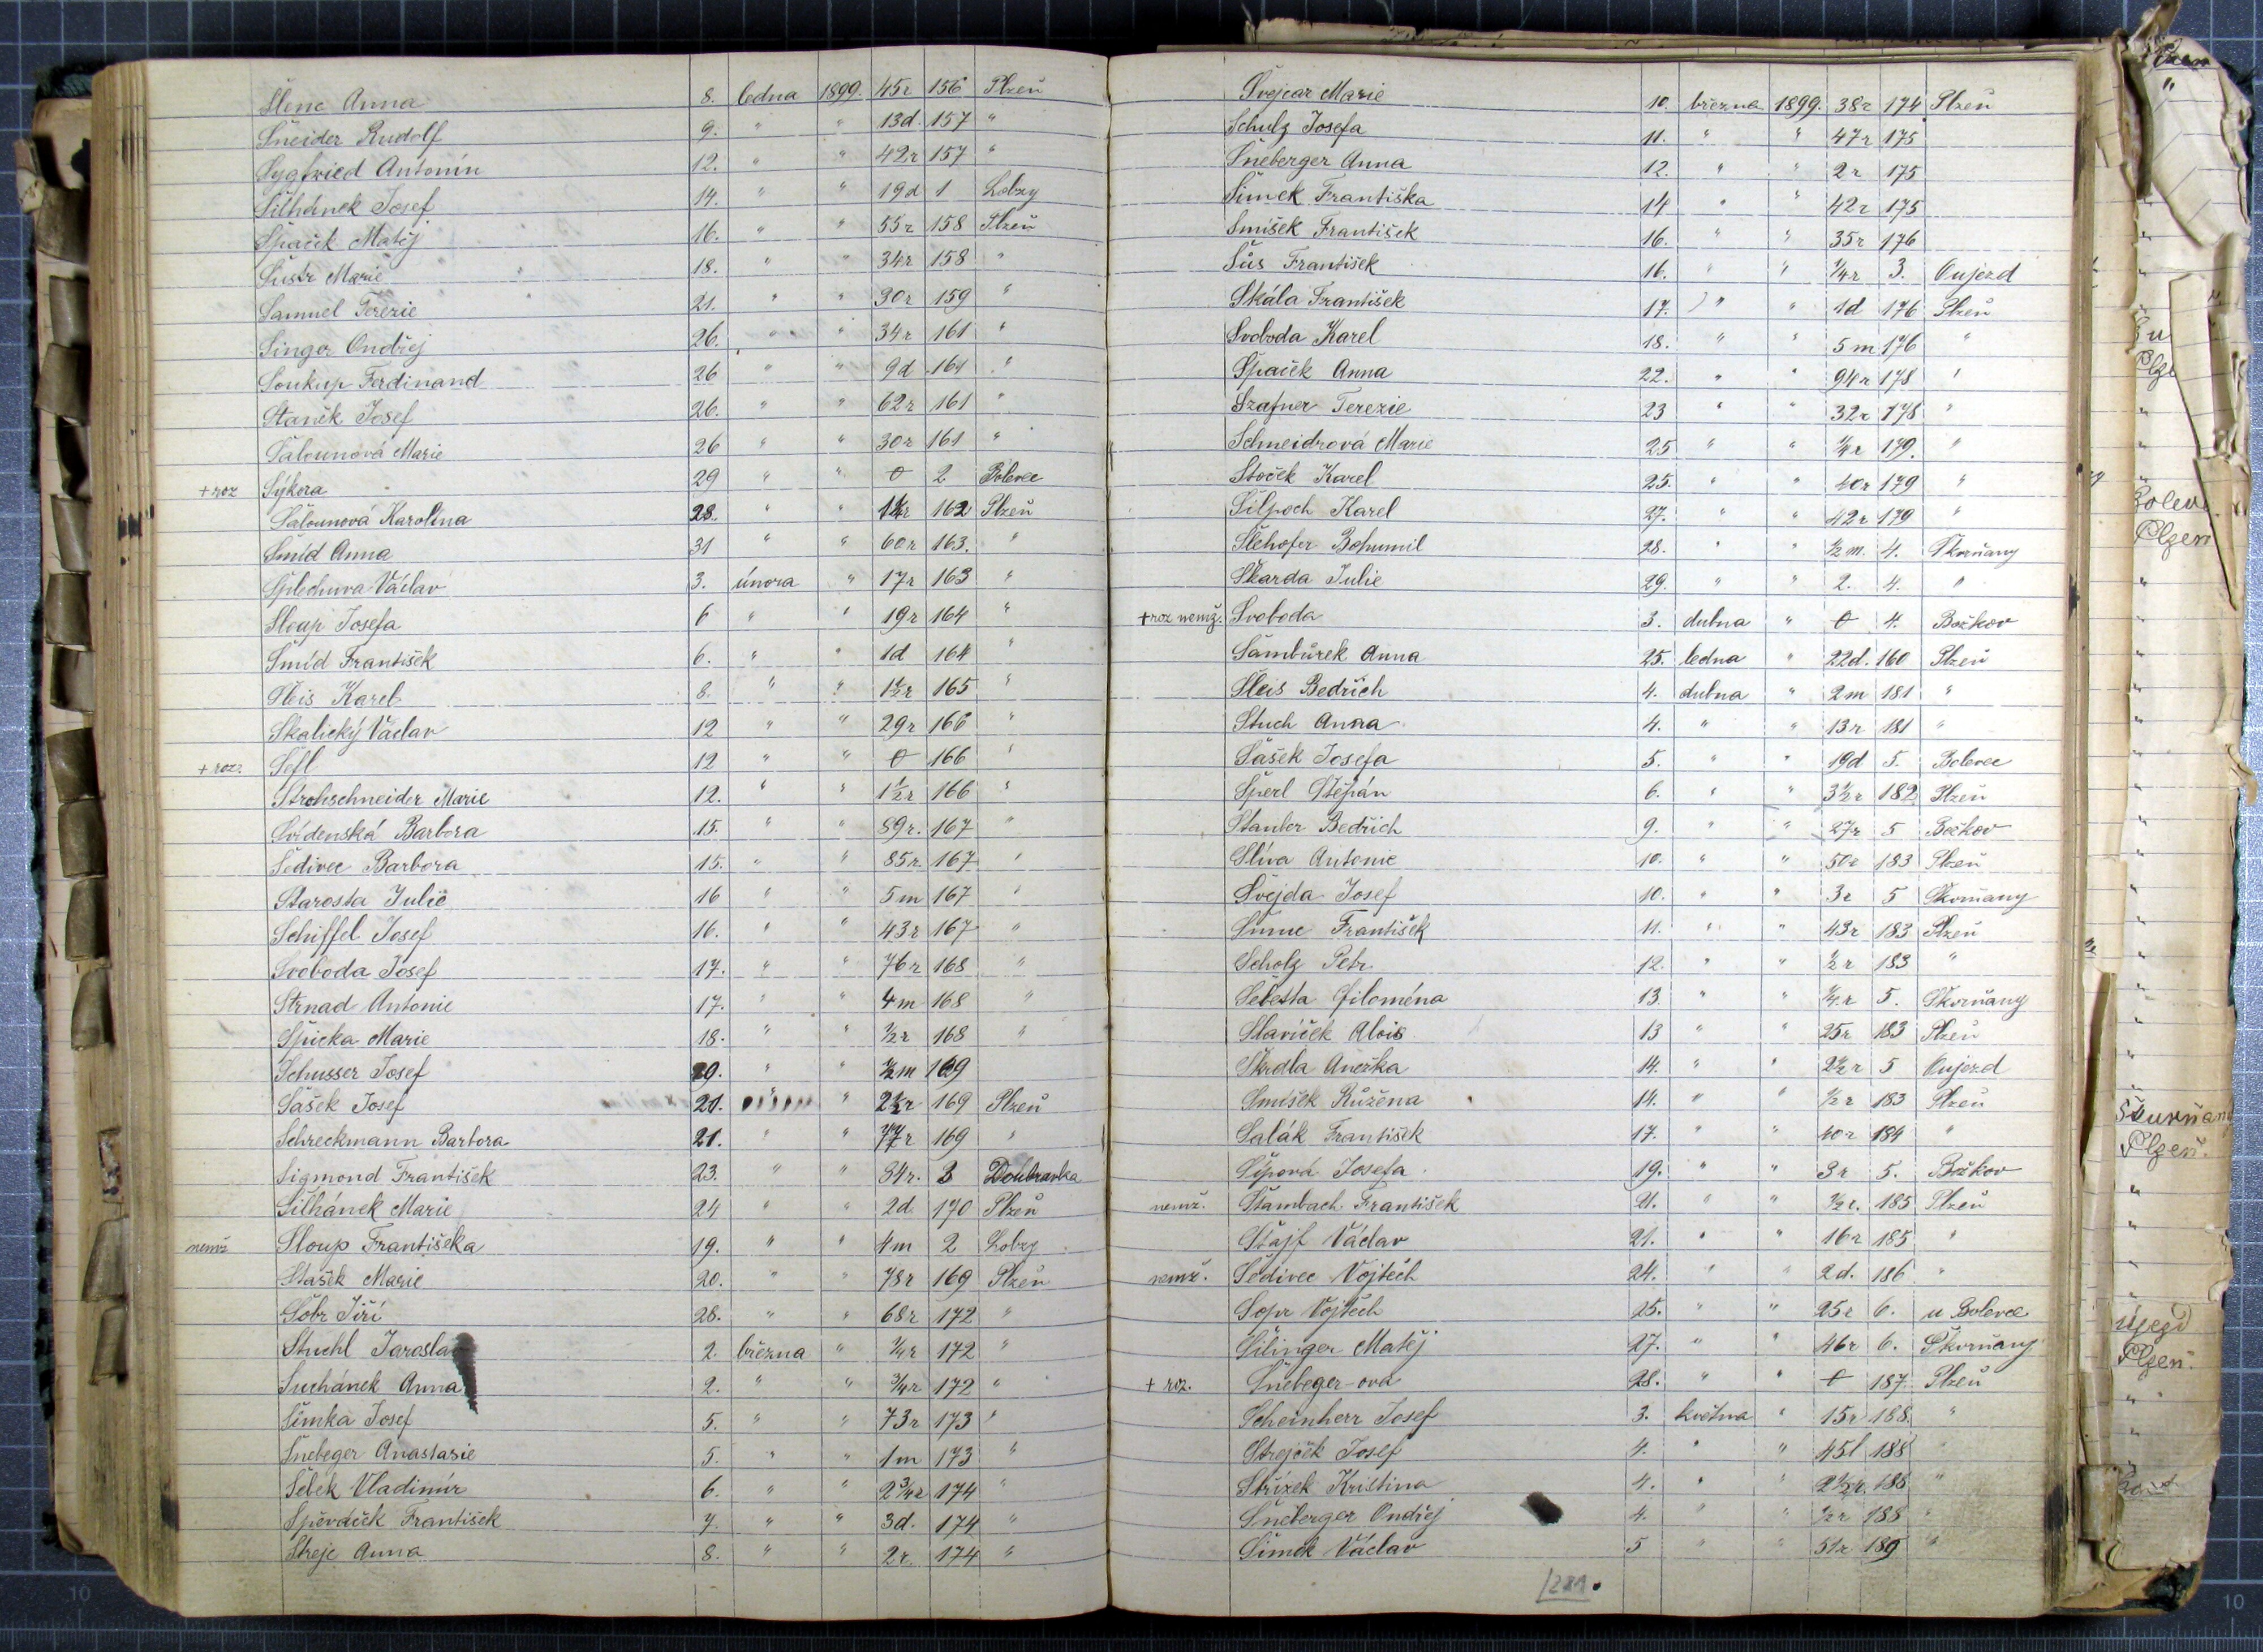 Slenc Anna 8. ledna 1899. 45r 156 Plzeň
Šneider Rudolf 9. " " 13d. 157 "
Sygfried Antonín 12. " " 42r 157 "
Šilhánek Josef 14. " " 19d 1 Lobzy
Špaček Matěj 16. " " 55r 158 Plzeň
Šustr Marie 18. " " 34r 158 "
Samuel Terezie 21. " " 30r 159 "
Singer Ondřej 26. " " 34r 161 "
Soukup Ferdinand 26 " " 9d 161 "
Staněk Josef 26. " " 62r 161 "
Šalounová Marie 26 " " 30r 161 "
+ roz Sýkora 29 " " 0 2 Bolevec
Šalounová Karolina 28. " " 162 Plzeň
Šmíd Anna 31 " " 60r 163. "
Splechuva Václav 3. února " 17r 163 "
Sloup Josefa 6 " " 19r 164 "
Šmíd František 6. " " 1d 164 "
Šleis Karel 8. " " 1½r 165 "
Skalický Václav 12 " " 29r 166 "
+ roz. Šefl 12 " " 0 166 "
Strohschneider Marie 12. " " 1½r 166 "
Svídenská Barbora 15. " " 89r. 167 "
Šedivec Barbora 15. " " 85r 167 "
Starosta Julie 16 " " 5m 167 "
Schiffel Josef 16. " " 43r 167 "
Svoboda Josef 17. " " 76r 168 "
Strnad Antonie 17. " " 4m 168 "
Špicka Marie 18. " " ½r 168 "
Schusser Josef 20. " " ½m 169
Šašek Josef 21. " 2½r 169 Plzeň
Schreckmann Barbora 21. " " 77r 169 "
Sigmond František 23. " " 34r. 3 Doubravka
Šilhánek Marie 24 " " 2d 170 Plzeň
nemž Sloup Františeka 19. " " 4m 2 Lobzy
Stašek Marie 20. " " 78r 169 Plzeň
Šobr Jiří 28. " " 68r 172 "
Stuchl Jarosla 2. března " ¼r 172 "
Suchánek Anna 2. " " ¾r 172 "
Šimka Josef 5. " " 73r 173 "
Šnebeger Anastasie 5. " " 1m 173 "
Šebek Vladimír 6. " " 2¾r 174 "
Spěváček František 7. " " 3d. 174 "
Streje Anna 8. " " 2r. 174 "
Švejcar Marie 10. března 1899. 38r 174 Plzeň
Schulz Josefa 11. " " 47r 175
Šneberger Anna 12. " " 2r 175
Šimek Františka 14 " " 42r 175
Smíšek František 16. " " 35r 176
Šůs František 16. " " ¼r 3. Oujezd
Skála František 17. " " 1d 176 Plzeň
Svoboda Karel 18. " " 5m 176 "
Špaček Anna 22. " " 94r 178 "
Szafner Terezie 23 " " 32r 178 "
Schneidrová Marie 25 " " ¼r 179. "
Stoček Karel 25. " " 40r 179 "
Silpoch Karel 27. " " 42r 179 "
Šlehofer Bohumil 28. " " ½m. 4. Skvrňany
Škarda Julie 29. " " 2. 4. "
+ roz nemž. Svoboda 3. dubna " 0 4. Božkov
Šambůrek Anna 25. ledna " 22d. 160 Plzeň
Šleis Bedřich 4. dubna " 2m 181 "
Stuch Anna 4. " " 13r 181 "
Šašek Josefa 5. " " 19d 5. Bolevec
Šperl Štěpán 6. " " 3½r 182 Plzeň
Stanler Bedřich 9. " " 27r 5 Božkov
Slíva Antonie 10. " " 50r 183 Plzeň
Švejda Josef 10. " " 3r 5 Skvrňany
František 11. " " 43r 183 Plzeň
Scholz Petr 12. " " ½r 183 "
Šebesta Filoména 13 " " ¼r 5. Skvrňany
Slavíček Alois 13 " " 25r 183 Plzeň
Škrdla Anežka 14. " " 2½r 5 Oujezd
Smíšek Růžena 14. " " ½r 183 Plzeň
Salák František 17. " " 40r 184 "
Šípová Josefa 19. " " 3r 5. Božkov
nemž. Štambach František 21. " " ½r. 185 Plzeň
Štajf Václav 21. " " 16r 185 "
nemž. Šedivec Vojtěch 24. " " 2d. 186 "
Sopr Vojtěch 25. " " 25r 6. u Bolevce
Šilinger Matěj 27. " " 46r 6. Skvrňany
+ roz. Šnebeger-ová 28. " " 0 187 Plzeň
Scheinherr Josef 3. května " 15r 188. "
Strejček Josef 4. " " 45l 188 "
Střízek Kristina 4. " " 2½r. 188 "
Šneberger Ondřej 4. " " ½r 188 "
Šimek Václav 5 " " 51r 189 "
281.
Bolev
Plzen
Škurňan
Plzeň.
Ujezd
Plzeň.